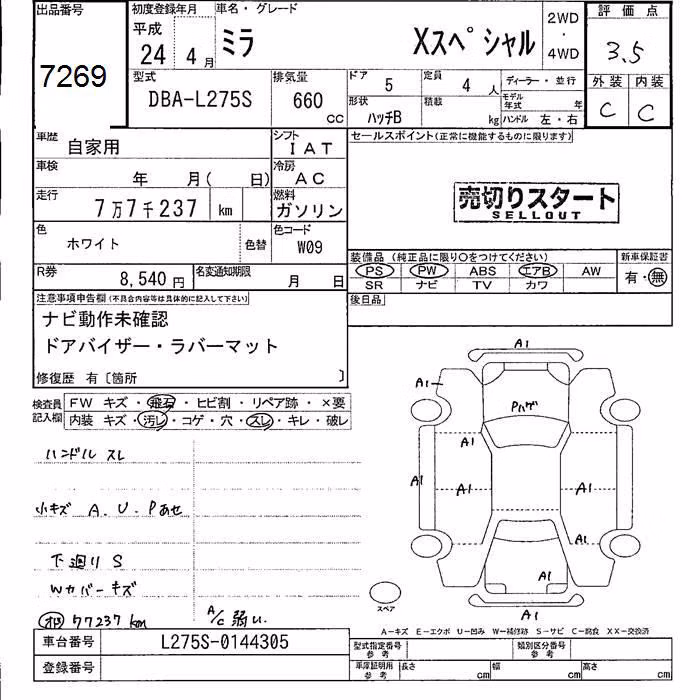 出品番号
7269
初度登録年月
平成
24 4 月
車名・グレード
ミラ Xスペシャル
2WD
・
4WD
評価点
3.5
外装 内装
C C
型式
DBA-L275S
排気量
660 CC
ドア 5
定員 4 人
形状 ハッチB
積載 kg
ディーラー・並行
モデル年式 年
ハンドル 左・右
車歴 自家用
シフト IAT
車検 年 月( 日)
冷房 AC
走行 7万7千237 km
燃料 ガソリン
色 ホワイト
色替
色コード W09
R券 8,540 円
名変通知期限 月 日
セールスポイント(正常に機能するものに限ります)
売切りスタート
SELLOUT
装備品(純正品に限り〇をつけてください)
PS PW ABS エアB AW
SR ナビ TV カワ
新車保証書
有・無
後日品
注意事項申告欄(不具合内容等は具体的に記入して下さい)
ナビ動作未確認
ドアバイザー・ラバーマット
修復歴 有〔箇所 〕
検査員記入欄
FW キズ・飛石・ヒビ割・リペア跡・×要
内装 キズ・汚レ・コゲ・穴・スレ・キレ・破レ
ハンドル スレ
小キズ A. U. Pあせ
下廻り S
Wカバーキズ
77237 km
A/C 弱い.
A1
A1
Pハゲ
A1
A1
A1
A1
A1
A1
A1
A1
スペア
A-キズ E-エクボ U-凹み W-補修跡 S-サビ C-腐食 XX-交換済
車台番号 L275S-0144305
登録番号
型式指定番号 参考
類別区分番号 参考
車庫証明用 参考
長さ cm 幅 cm 高さ cm